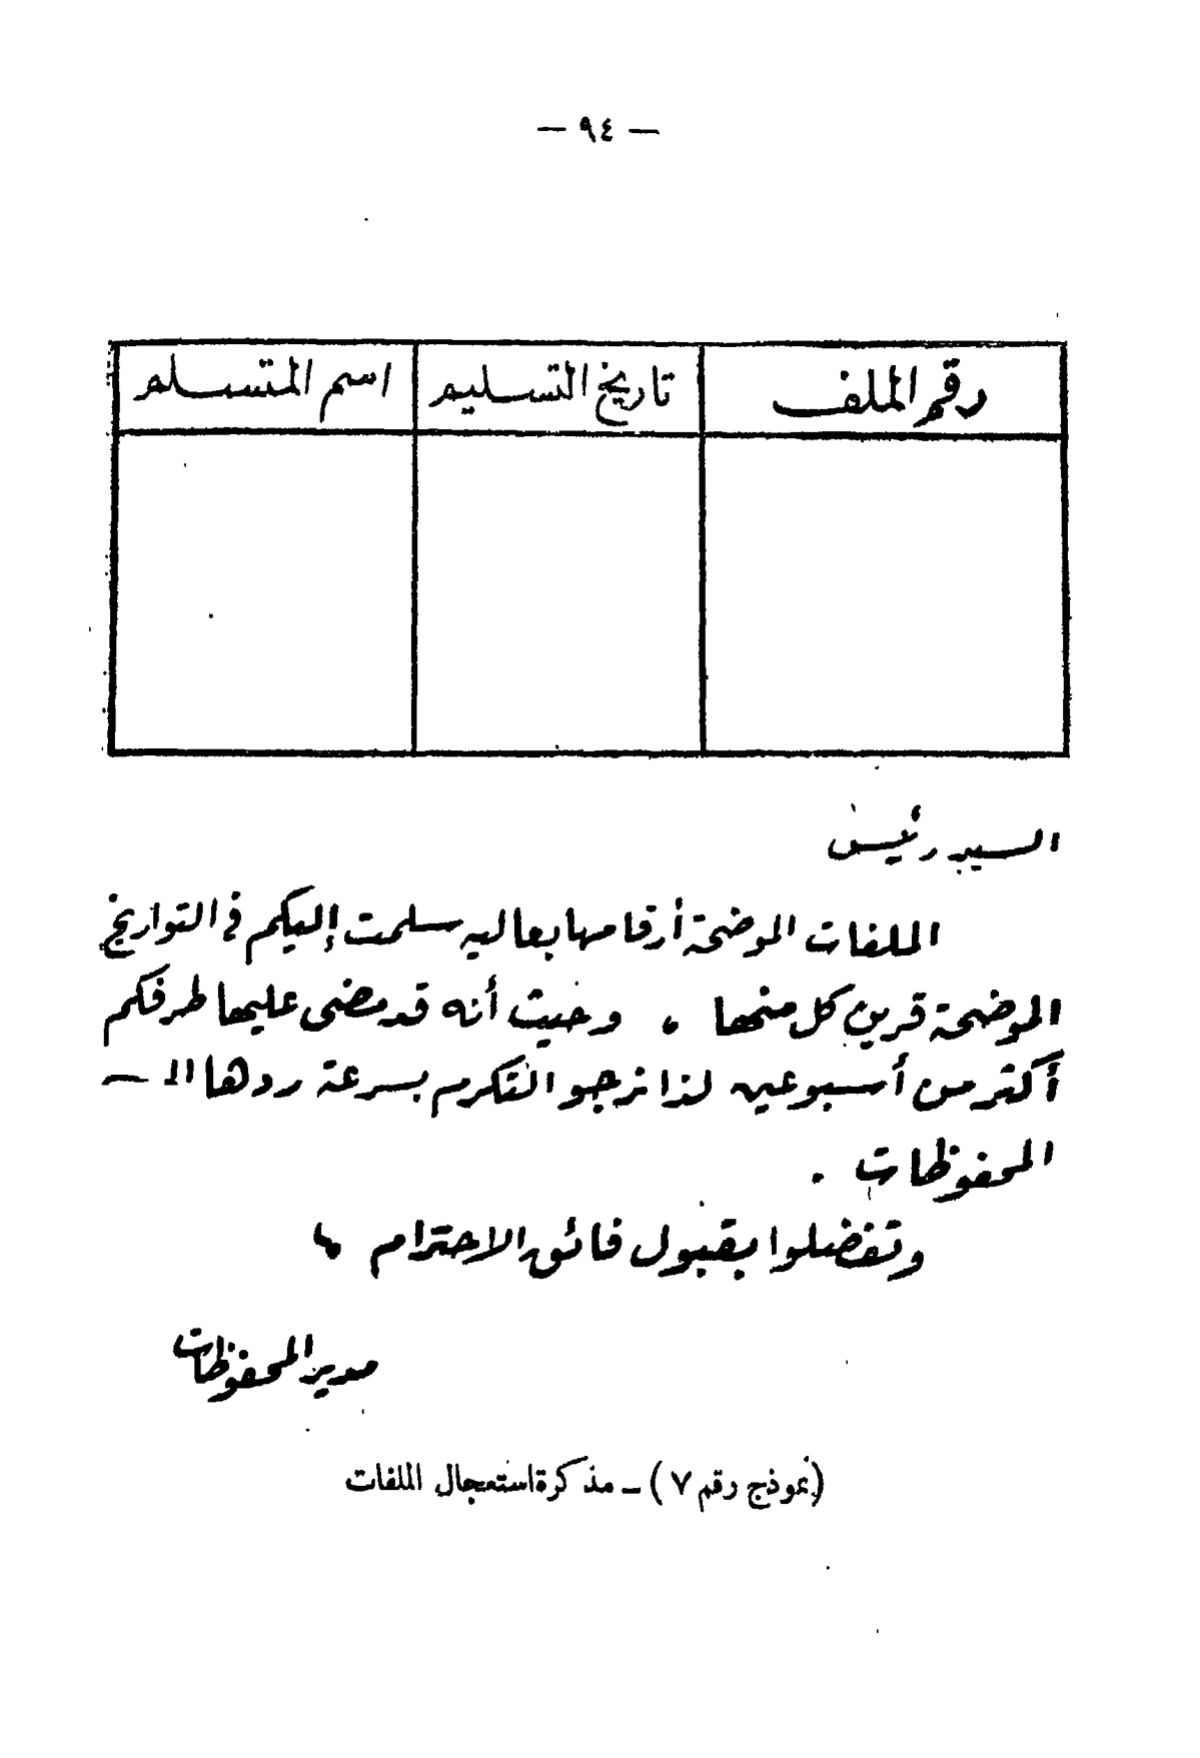 — ٩٤ —
رقم الملف تاريخ التسليم اسم المتسلم
السيد رئيس
الملفات الموضحة أرقامها بعاليه سلمت إليكم فى التواريخ
الموضحة قرين كل منها . وحيث أنه قد مضى عليها طرفكم
أكثر من أسبوعين لذا نرجو التكرم بسرعة ردها الـ —
المحفوظات .
وتفضلوا بقبول فائق الاحترام ،
مدير المحفوظات
(نموذج رقم ٧) – مذكرة استعجال الملفات